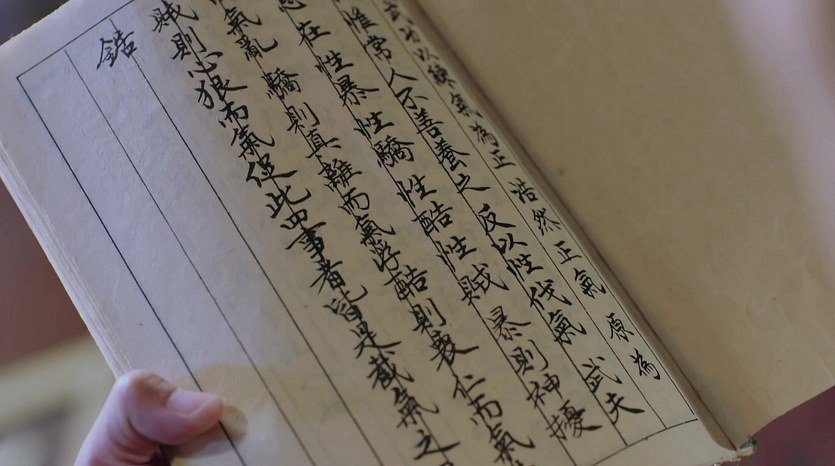 武功以練氣為正 浩然正氣 原為
惟常人不善養之 反以性伐氣 武夫
在性暴 性驕 性酷 性賊 暴則神擾
氣亂 驕則真離而氣浮 酷則喪仁而氣
賊則心狠而氣促 此四事者皆是截氣之
鋯